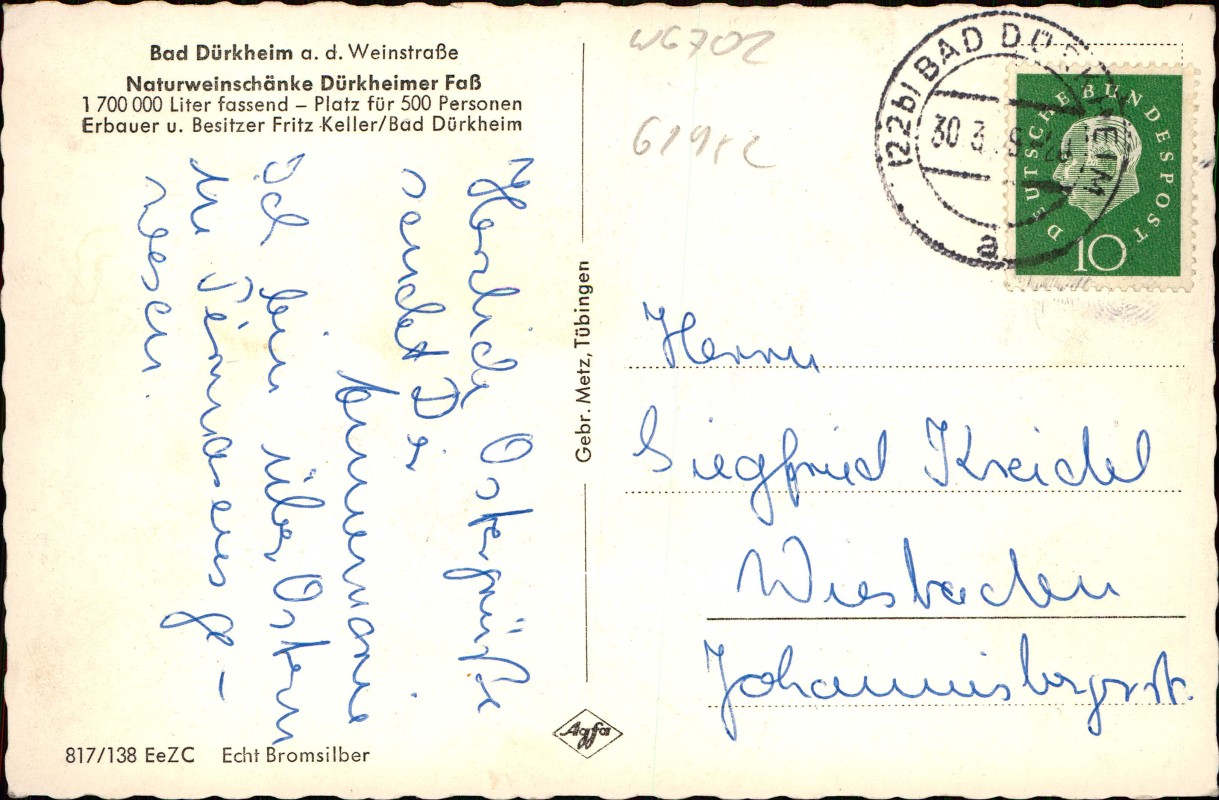 Bad Dürkheim a. d. Weinstraße
Naturweinschänke Dürkheimer Faß
1 700 000 Liter fassend – Platz für 500 Personen
Erbauer u. Besitzer Fritz Keller/Bad Dürkheim
Herzliche Ostergrüße
sendet Dir
Annemarie
Ich bin über Ostern
in Pirmasens ge-
wesen.
817/138 EeZC Echt Bromsilber
Gebr. Metz, Tübingen
Agfa
W6702
(22b) BAD DÜRKHEIM
30.3.
a
DEUTSCHE BUNDESPOST
10
Herrn
Siegfried Kreidel
Wiesbaden
Johannisbergerstr.